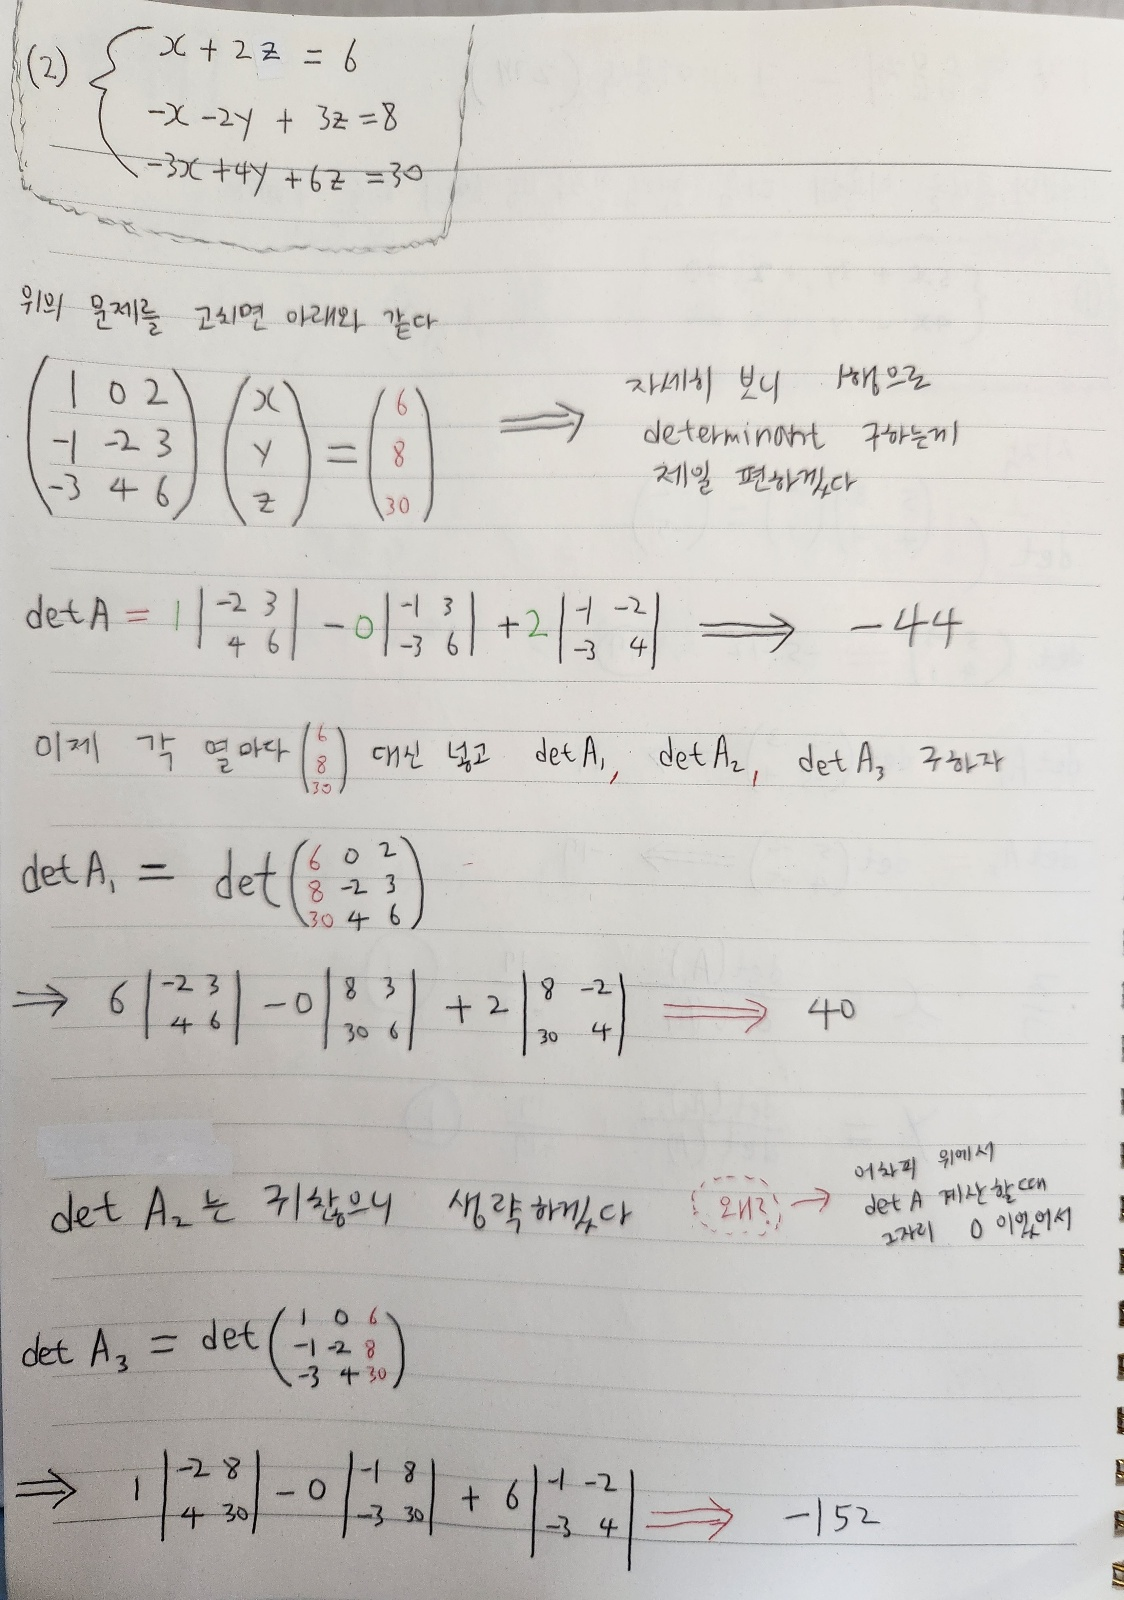 (2) { x + 2z = 6
-x -2y + 3z = 8
-3x + 4y + 6z = 30
위의 문제를 고치면 아래와 같다
(1 0 2 / -1 -2 3 / -3 4 6) (x / y / z) = (6 / 8 / 30) ⟹ 자세히 보니 1행으로
determinant 구하는게
제일 편하겠다
det A = 1 |-2 3 / 4 6| - 0 |-1 3 / -3 6| + 2 |-1 -2 / -3 4| ⟹ -44
이제 각 열마다 (6 / 8 / 30) 대신 넣고 det A₁, det A₂, det A₃ 구하자
det A₁ = det (6 0 2 / 8 -2 3 / 30 4 6)
⟹ 6 |-2 3 / 4 6| - 0 |8 3 / 30 6| + 2 |8 -2 / 30 4| ⟹ 40
det A₂는 귀찮으니 생략하겠다 왜? → 어차피 위에서
det A 계산할때
그자리 0 이었어서
det A₃ = det (1 0 6 / -1 -2 8 / -3 4 30)
⟹ 1 |-2 8 / 4 30| - 0 |-1 8 / -3 30| + 6 |-1 -2 / -3 4| ⟹ -152